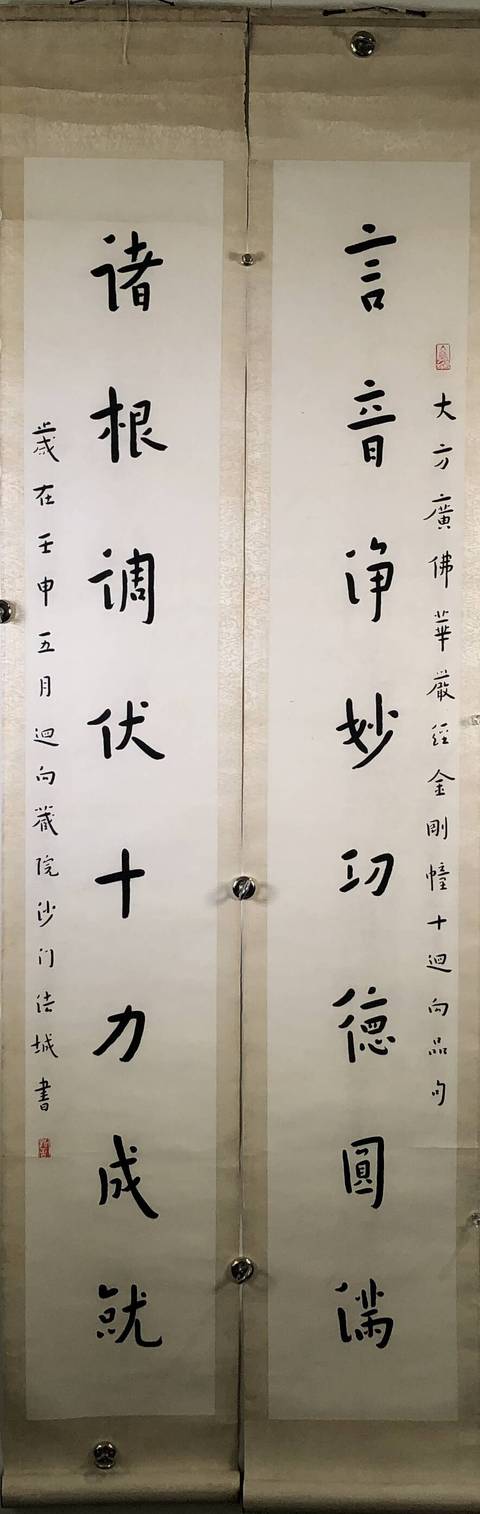 大方廣佛華嚴經金剛幢十迴向品句
言音淨妙功德圓滿
諸根調伏十力成就
歲在壬申五月迴向藏院沙门法城書